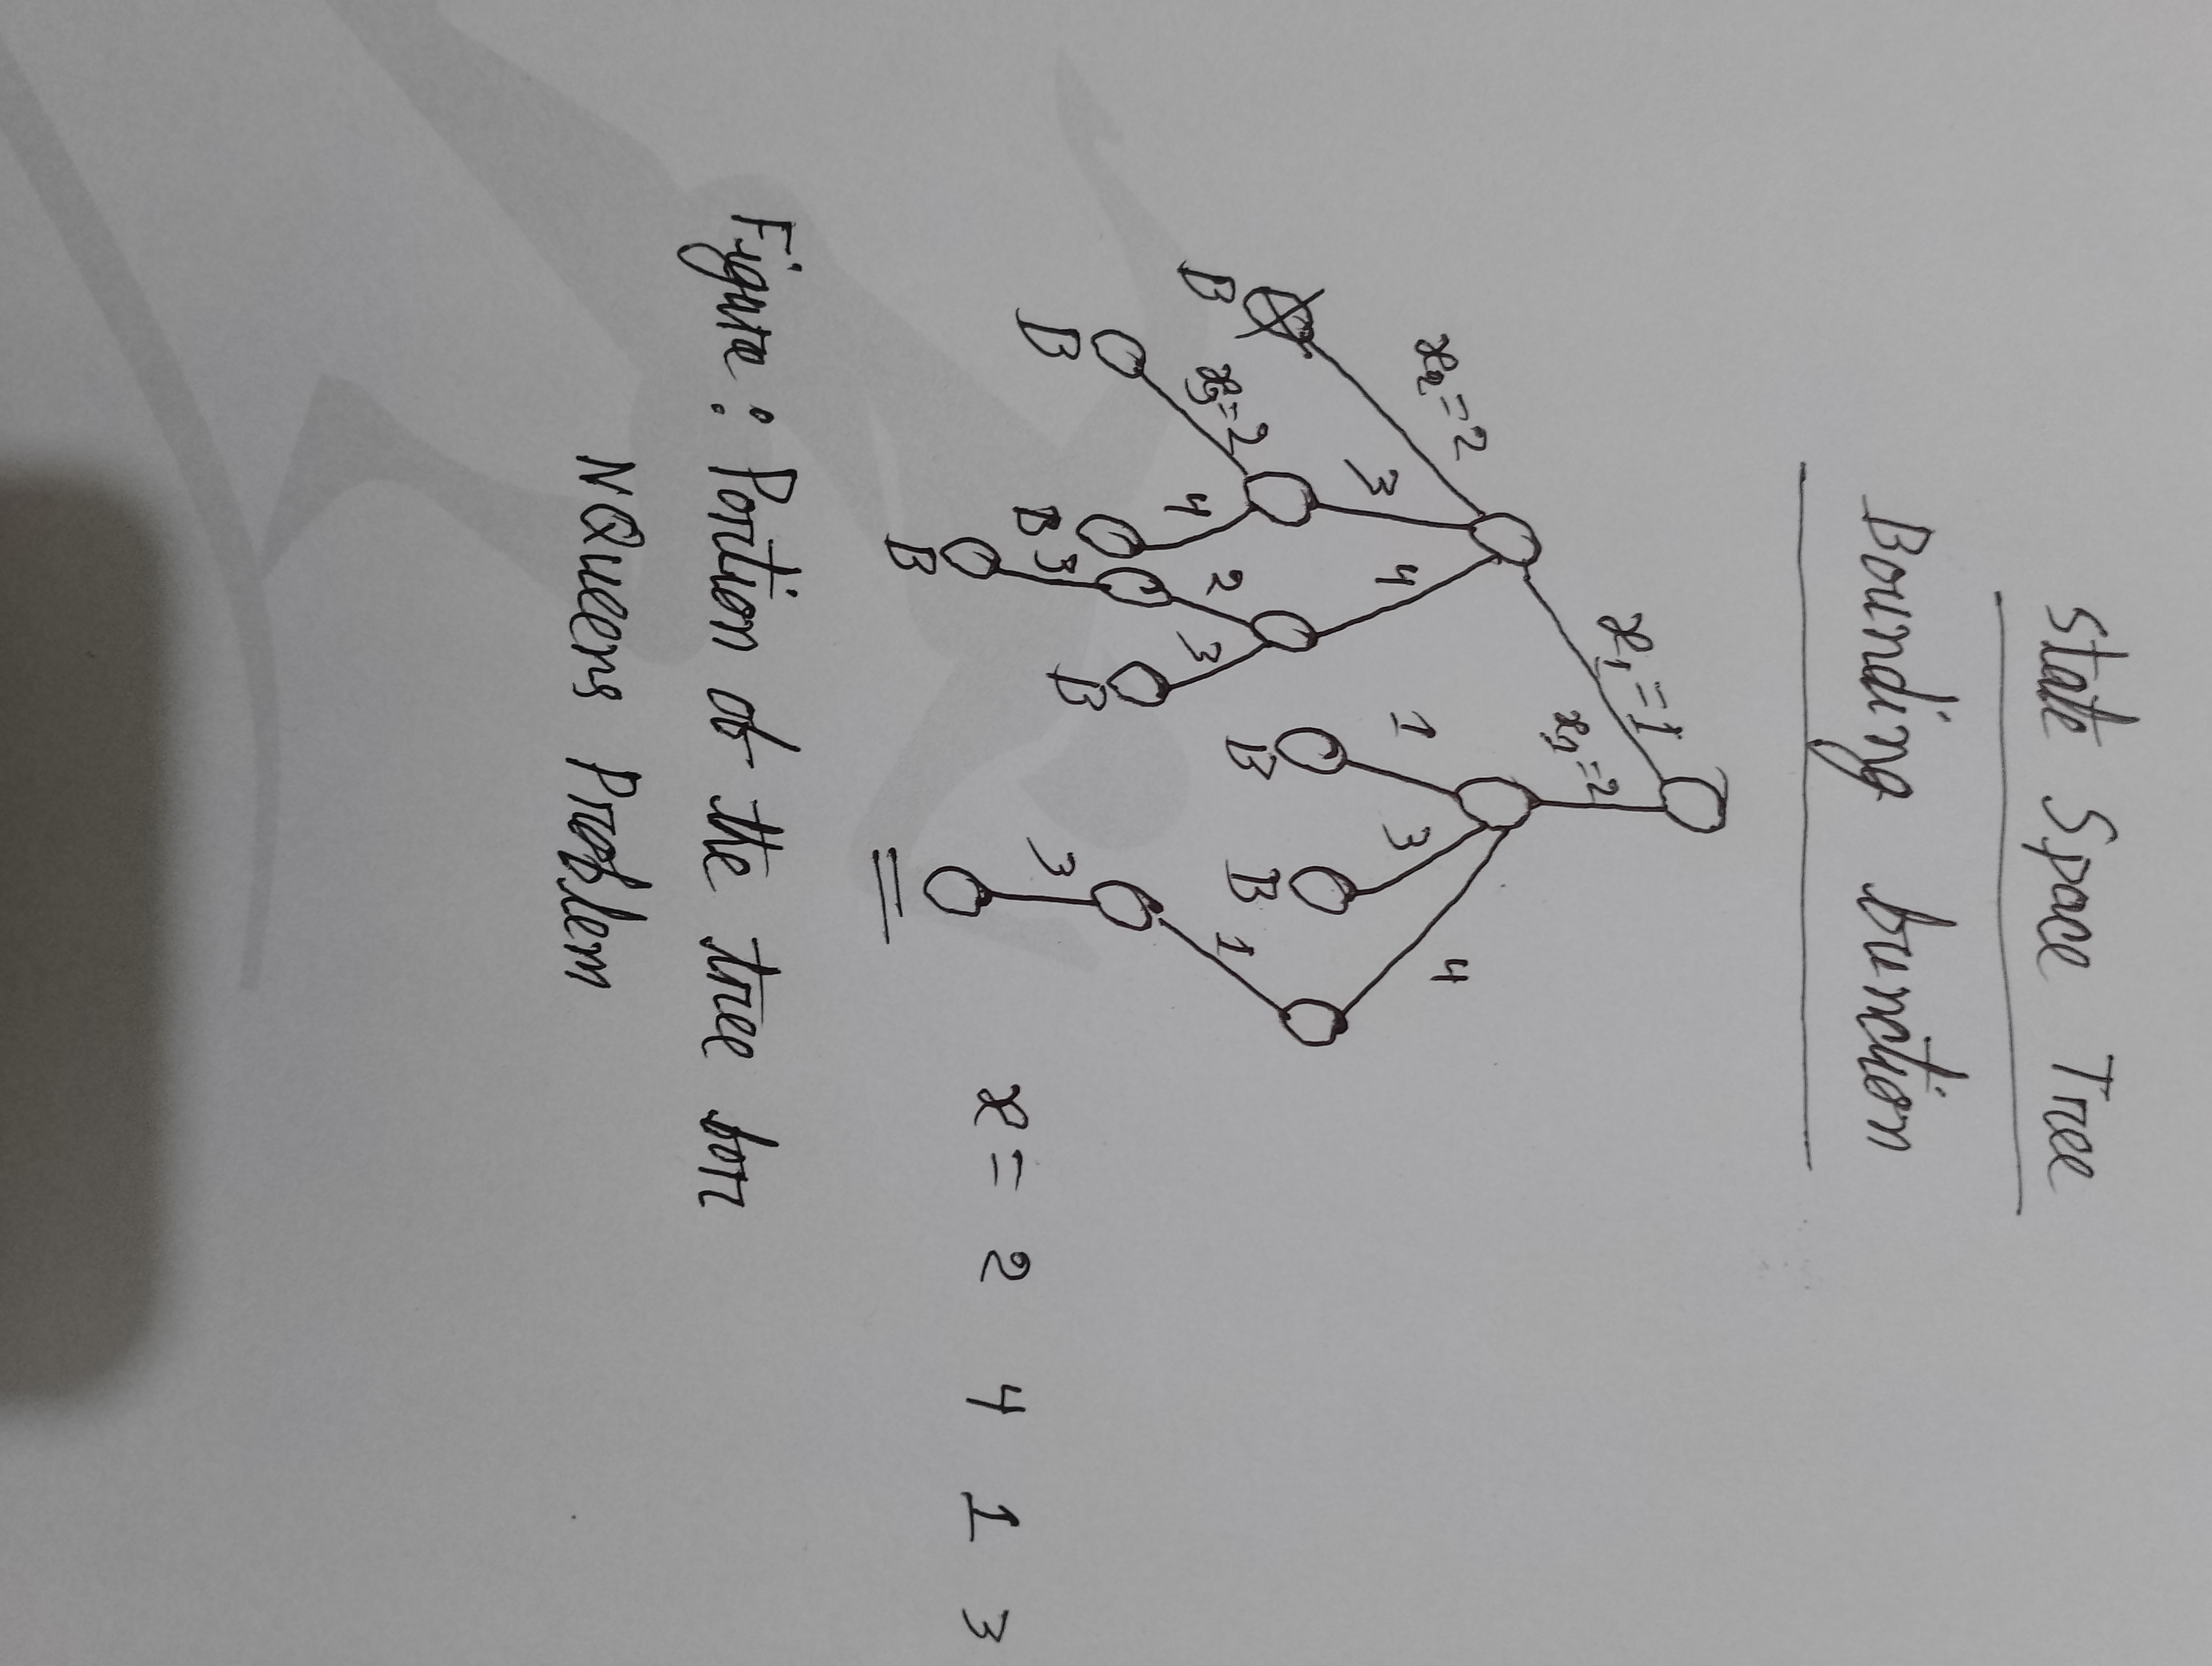 State Space Tree
Bounding function
x₁=1
x₁=2
x₂=2
3
4
1
3
4
B
x₃=2
4
2
3
B
B
1
B
B
3
B
3
B
x= 2 4 1 3
Figure: Portion of the tree for
NQueens Problem